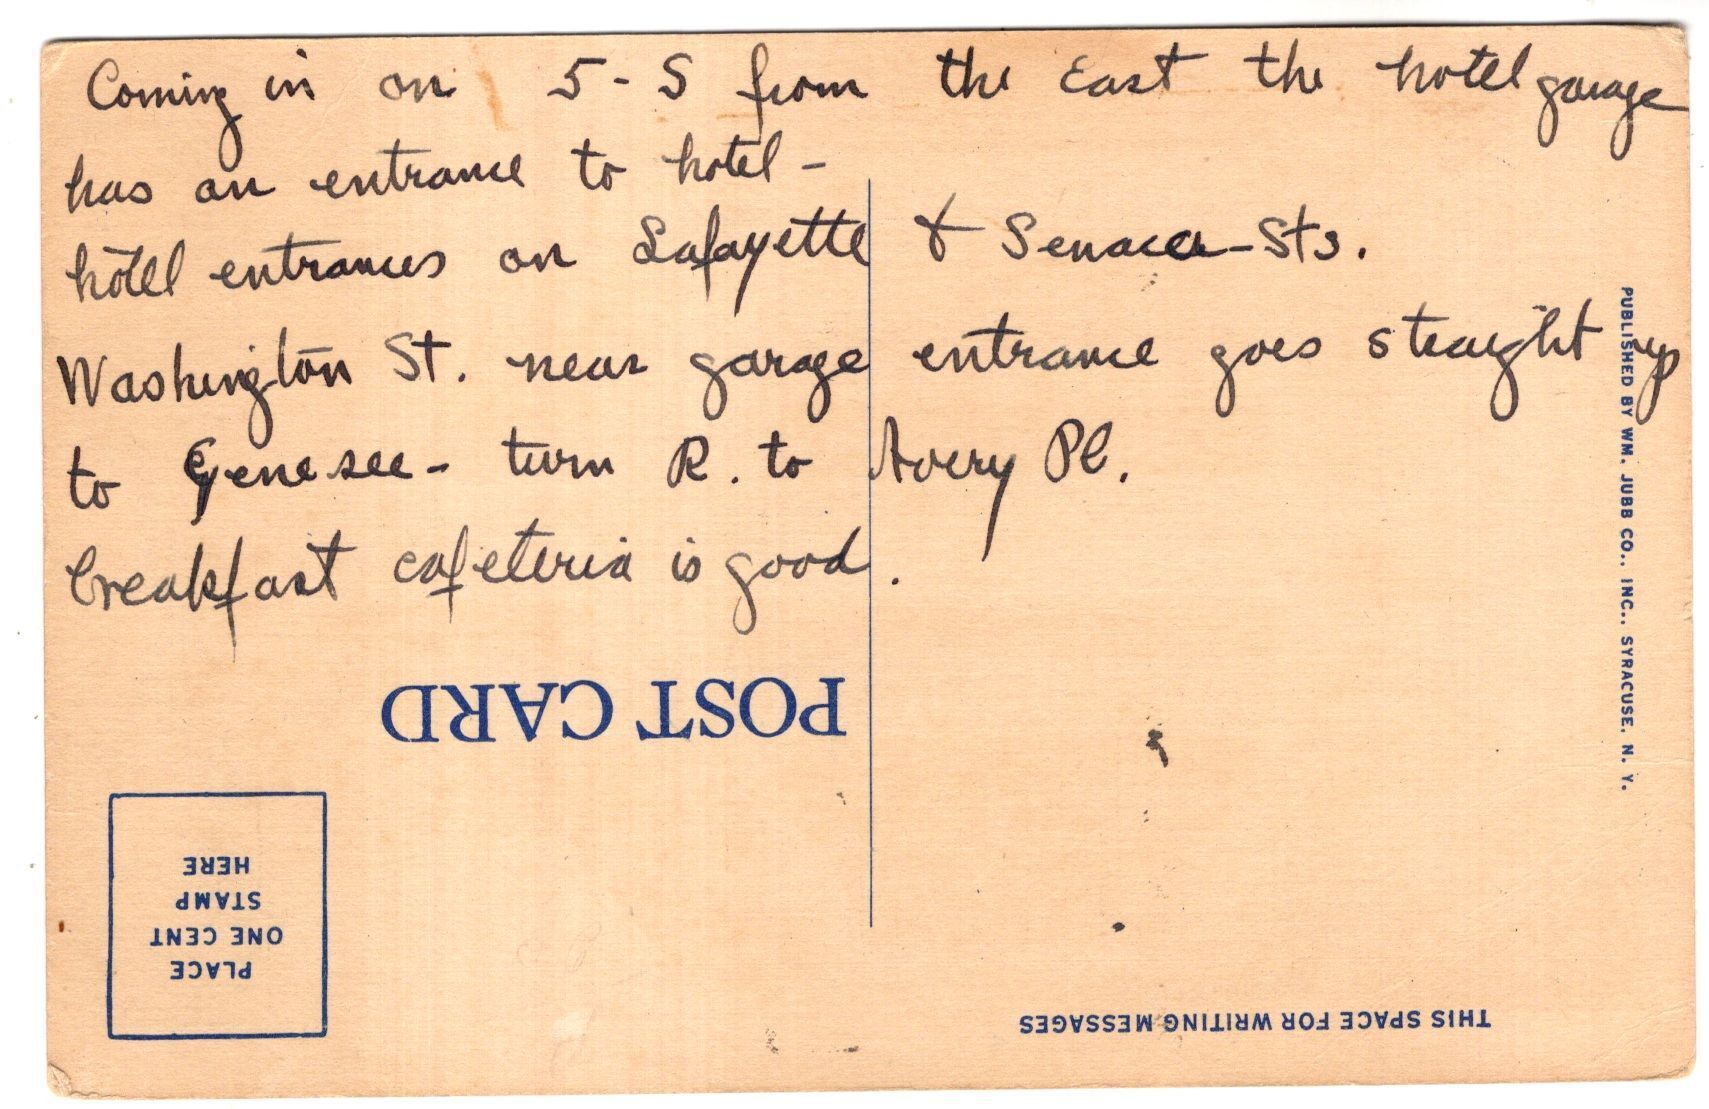 Coming in on 5-S from the East the hotel garage
has an entrance to hotel -
hotel entrances on Lafayette & Senaca - Sts.
Washington St. near garage entrance goes straight up
to Genesee - turn R. to Avery Pl.
breakfast cafeteria is good.
PUBLISHED BY WM. JUBB CO., INC., SYRACUSE, N. Y.
POST CARD
PLACE
ONE CENT
STAMP
HERE
THIS SPACE FOR WRITING MESSAGES